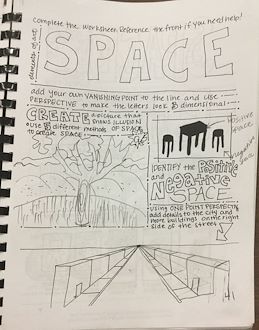 Complete the worksheet. Reference the front if you need help!
elements of art
SPACE
add your own VANISHING POINT to the line and use
PERSPECTIVE to make the letters look 3 dimensional
CREATE a picture that
shows ILLUSION
OF SPACE
use 3 different methods
to create SPACE
POSITIVE
space
negative
space
IDENTIFY the Positive
and
Negative
SPACE
Using ONE POINT PERSPECTIVE
add details to the city and
more buildings on the right
side of the street